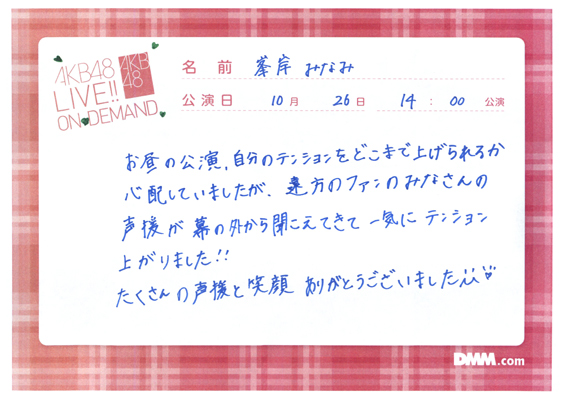 AKB48
LIVE!!
ON DEMAND
AKB
48
名前 峯岸 みなみ
公演日 10月 26日 14:00 公演
お昼の公演、自分のテンションをどこまで上げられるか
心配していましたが、遠方のファンのみなさんの
声援が幕の外から聞こえてきて一気にテンション
上がりました!!
たくさんの声援と笑顔 ありがとうございました
DMM.com